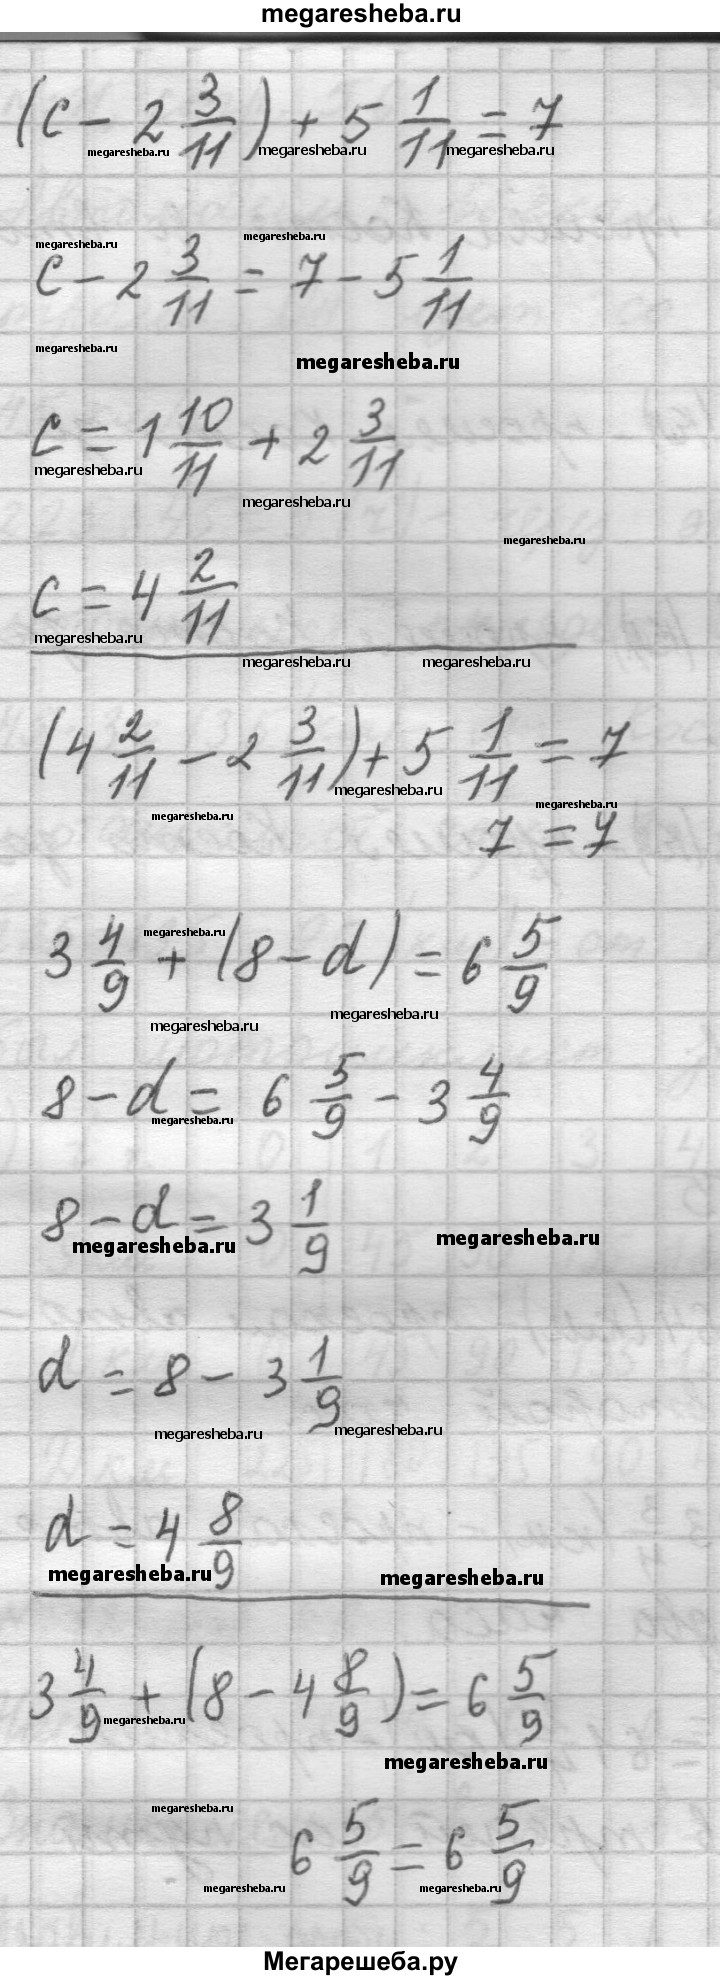 megaresheba.ru
(c - 2 3/11) + 5 1/11 = 7
megaresheba.ru megaresheba.ru megaresheba.ru
megaresheba.ru megaresheba.ru
c - 2 3/11 = 7 - 5 1/11
megaresheba.ru megaresheba.ru
c = 1 10/11 + 2 3/11
megaresheba.ru
megaresheba.ru
megaresheba.ru
c = 4 2/11
megaresheba.ru
megaresheba.ru megaresheba.ru
(4 2/11 - 2 3/11) + 5 1/11 = 7
megaresheba.ru
megaresheba.ru megaresheba.ru
7 = 7
megaresheba.ru
3 4/9 + (8 - d) = 6 5/9
megaresheba.ru megaresheba.ru
8 - d = 6 5/9 - 3 4/9
megaresheba.ru
8 - d = 3 1/9
megaresheba.ru megaresheba.ru
d = 8 - 3 1/9
megaresheba.ru megaresheba.ru
d = 4 8/9
megaresheba.ru megaresheba.ru
3 4/9 + (8 - 4 8/9) = 6 5/9
megaresheba.ru
megaresheba.ru
megaresheba.ru
6 5/9 = 6 5/9
megaresheba.ru megaresheba.ru
Мегарешеба.ру